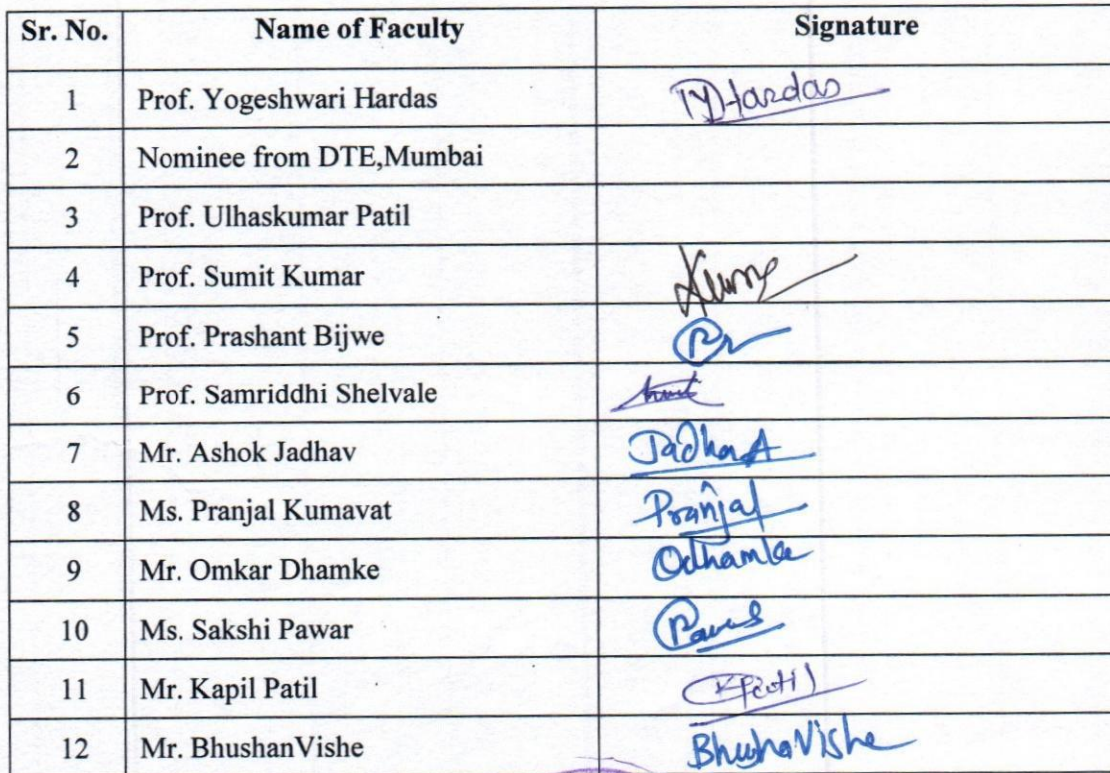 Sr. No. Name of Faculty Signature
1 Prof. Yogeshwari Hardas YHardas
2 Nominee from DTE,Mumbai
3 Prof. Ulhaskumar Patil
4 Prof. Sumit Kumar
5 Prof. Prashant Bijwe
6 Prof. Samriddhi Shelvale
7 Mr. Ashok Jadhav JadhavA
8 Ms. Pranjal Kumavat Pranjal
9 Mr. Omkar Dhamke Odhamke
10 Ms. Sakshi Pawar
11 Mr. Kapil Patil KPatil
12 Mr. BhushanVishe BhushanVishe